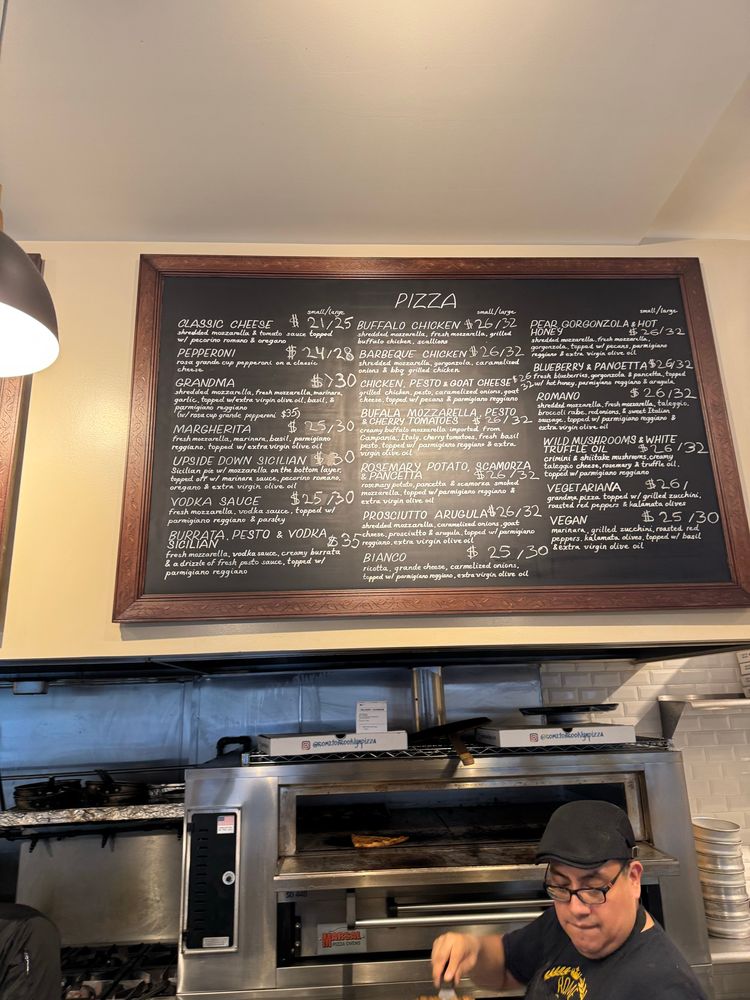 PIZZA
small/large
CLASSIC CHEESE $ 21/25
shredded mozzarella & tomato sauce topped
w/ pecorino romano & oregano
PEPPERONI $ 24/28
rosa grande cup pepperoni on a classic
cheese
GRANDMA $ 30
shredded mozzarella, fresh mozzarella, marinara,
garlic, topped w/extra virgin olive oil, basil, &
parmigiano reggiano
(w/ rosa cup grande pepperoni $35)
MARGHERITA $ 25/30
fresh mozzarella, marinara, basil, parmigiano
reggiano, topped w/ extra virgin olive oil
UPSIDE DOWN SICILIAN $ 30
Sicilian pie w/ mozzarella on the bottom layer,
topped off w/ marinara sauce, pecorino romano,
oregano & extra virgin olive oil
VODKA SAUCE $25/30
fresh mozzarella, vodka sauce, topped w/
parmigiano reggiano & parsley
BURRATA, PESTO & VODKA
SICILIAN $35
fresh mozzarella, vodka sauce, creamy burrata
& a drizzle of fresh pesto sauce, topped w/
parmigiano reggiano
small/large
BUFFALO CHICKEN $26/32
shredded mozzarella, fresh mozzarella, grilled
buffalo chicken, scallions
BARBEQUE CHICKEN $26/32
shredded mozzarella, gorgonzola, caramelized
onions & bbq grilled chicken
CHICKEN, PESTO & GOAT CHEESE $26/32
grilled chicken, pesto, caramelized onions, goat
cheese, topped w/ pecans & parmigiano reggiano
BUFALA MOZZARELLA, PESTO
& CHERRY TOMATOES $26/32
creamy buffalo mozzarella imported from
Campania, Italy, cherry tomatoes, fresh basil
pesto, topped w/ parmigiano reggiano & extra
virgin olive oil
ROSEMARY POTATO, SCAMORZA
& PANCETTA $26/32
rosemary potato, pancetta & scamorza smoked
mozzarella, topped w/ parmigiano reggiano &
extra virgin olive oil
PROSCIUTTO ARUGULA $26/32
shredded mozzarella, caramelized onions, goat
cheese, prosciutto & arugula, topped w/ parmigiano
reggiano, extra virgin olive oil
BIANCO $ 25/30
ricotta, grande cheese, carmelized onions,
topped w/ parmigiano reggiano, extra virgin olive oil
small/large
PEAR GORGONZOLA & HOT
HONEY $26/32
shredded mozzarella, fresh mozzarella,
gorgonzola, topped w/ pecans, parmigiano
reggiano & extra virgin olive oil
BLUEBERRY & PANCETTA $26/32
fresh blueberries, gorgonzola & pancetta, topped
w/ hot honey, parmigiano reggiano & arugula
ROMANO $26/32
shredded mozzarella, fresh mozzarella, taleggio,
broccoli rabe, red onions, & sweet Italian
sausage, topped w/ parmigiano reggiano &
extra virgin olive oil
WILD MUSHROOMS & WHITE
TRUFFLE OIL $26/32
crimini & shiitake mushrooms, creamy
taleggio cheese, rosemary & truffle oil,
topped w/ parmigiano reggiano
VEGETARIANA $26/
grandma pizza topped w/ grilled zucchini,
roasted red peppers & kalamata olives
VEGAN $25/30
marinara, grilled zucchini, roasted red
peppers, kalamata olives, topped w/ basil
& extra virgin olive oil
MARSAL
PIZZA OVENS